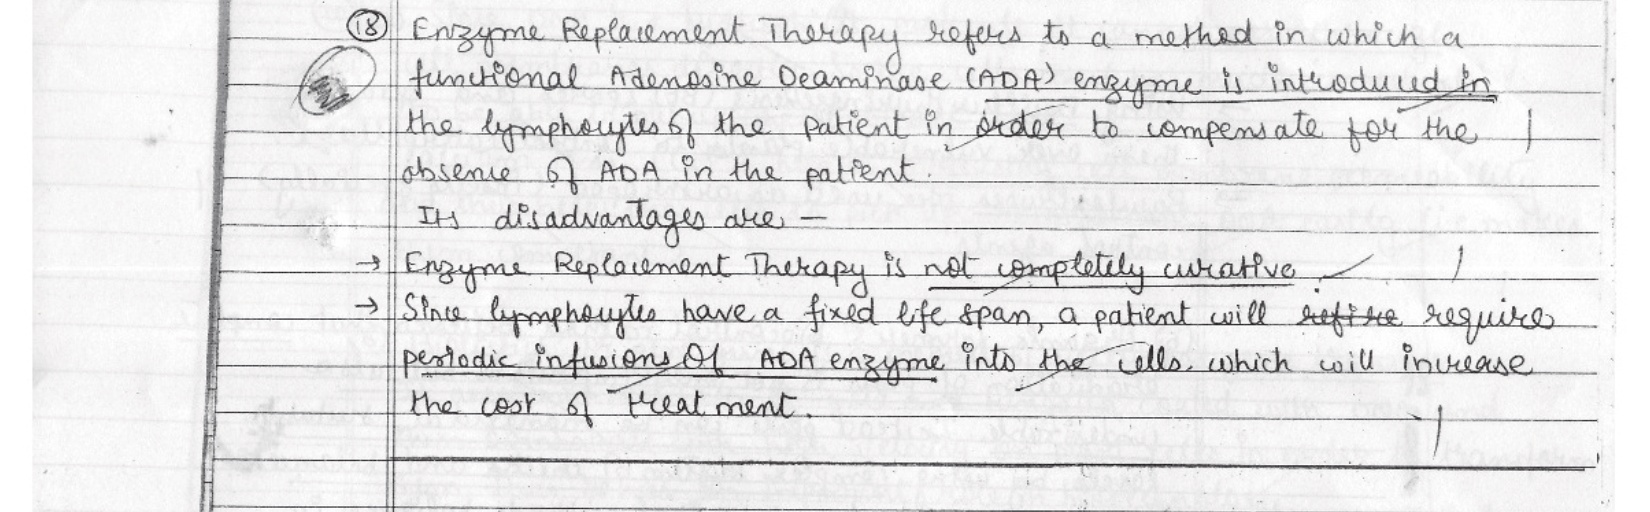 18 Enzyme Replacement Therapy refers to a method in which a
functional Adenosine Deaminase (ADA) enzyme is introduced in
the lymphocytes of the patient in order to compensate for the
absence of ADA in the patient.
Its disadvantages are —
→ Enzyme Replacement Therapy is not completely curative.
→ Since lymphocytes have a fixed life span, a patient will require
periodic infusions of ADA enzyme into the cells which will increase
the cost of treatment.